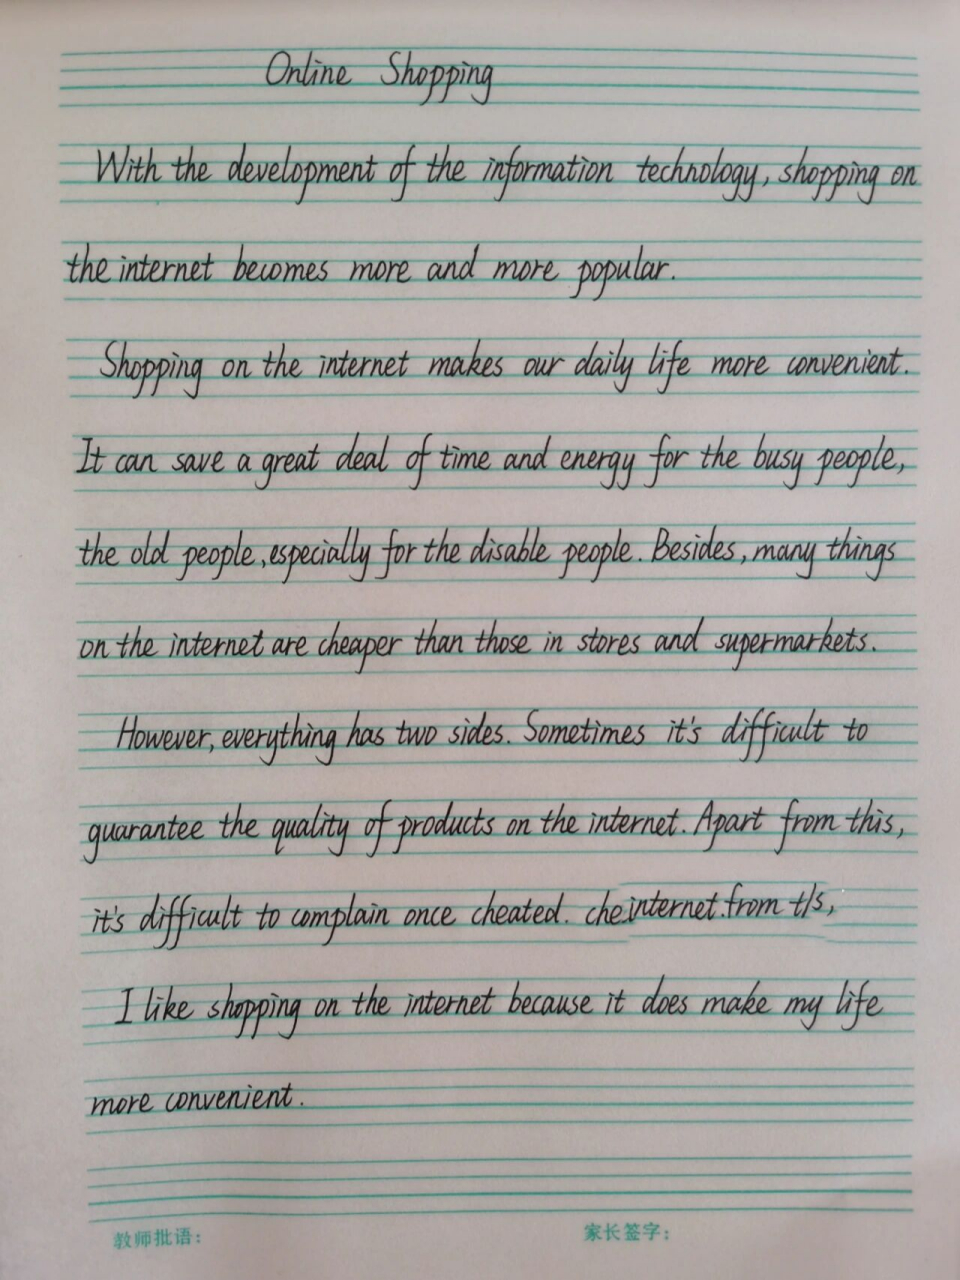 Online Shopping
With the development of the information technology, shopping on
the internet becomes more and more popular.
Shopping on the internet makes our daily life more convenient.
It can save a great deal of time and energy for the busy people,
the old people, especially for the disable people. Besides, many things
on the internet are cheaper than those in stores and supermarkets.
However, everything has two sides. Sometimes it's difficult to
guarantee the quality of products on the internet. Apart from this,
it's difficult to complain once cheated. internet. from
I like shopping on the internet because it does make my life
more convenient.
教师批语: 家长签字: